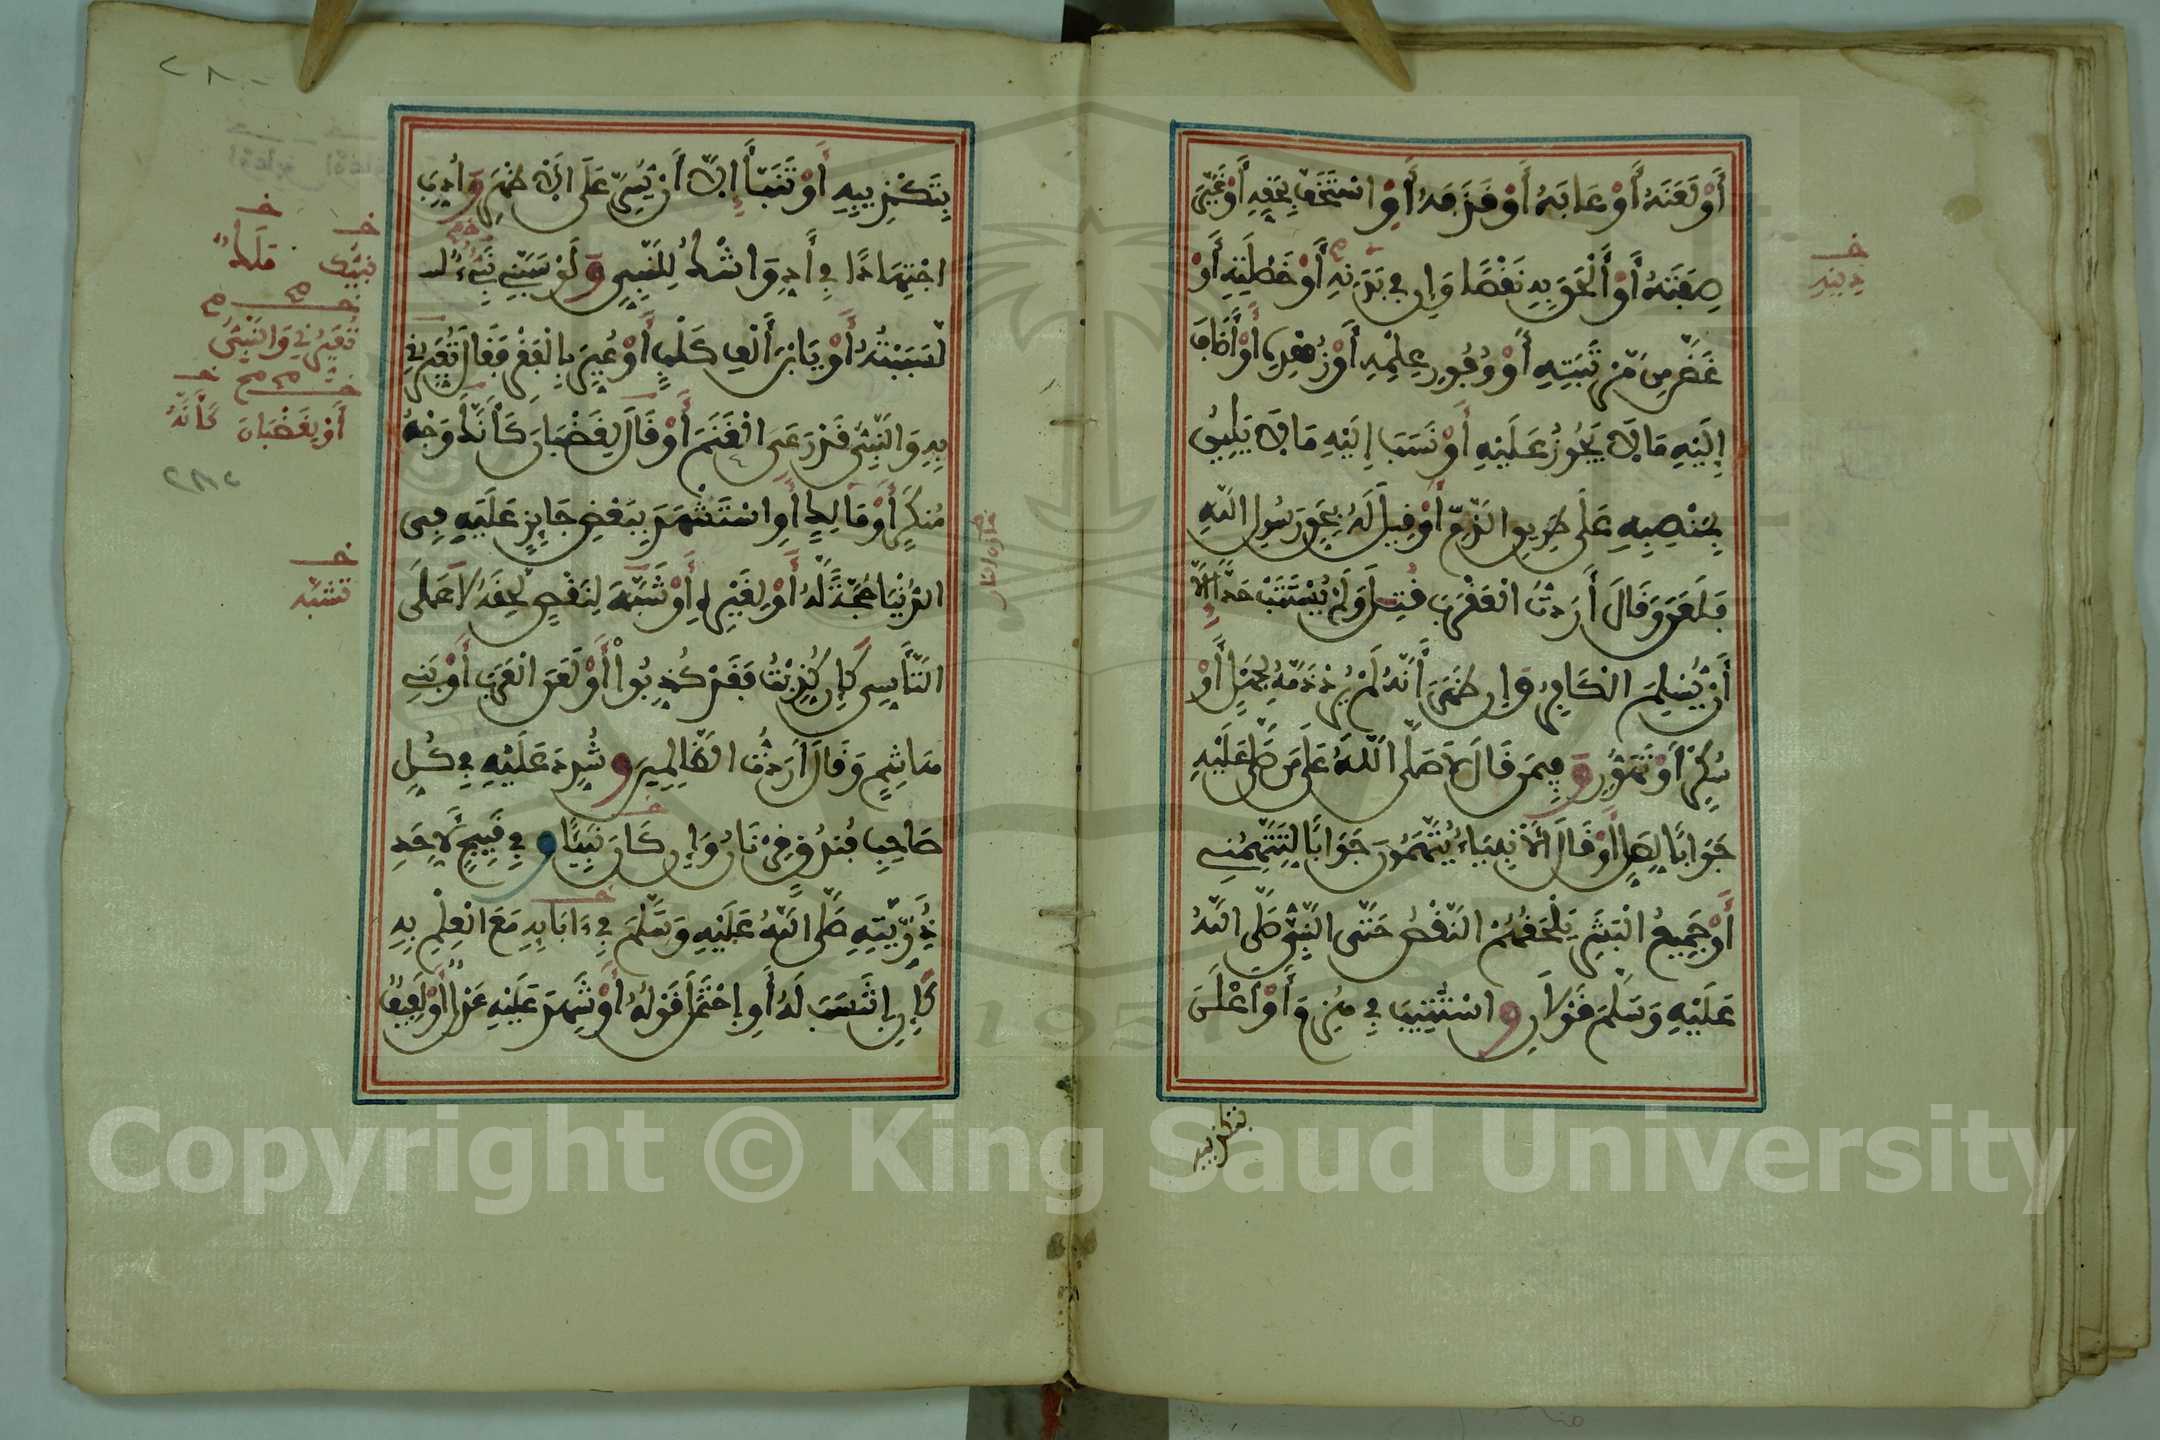 أَوْ لَعَنَهُ أَوْ عَابَهُ أَوْ قَذَفَهُ أَوِ اسْتَخَفَّ بِحَقِّهِ أَوْ غَيَّرَ
صِفَتَهُ أَوْ أَلْحَقَ بِهِ نَقْصًا وَإِن فِي بَدَنِهِ أَوْ خَصْلَتِهِ أَوْ
غَضَّ مِن مَّرْتَبَتِهِ أَوْ وُفُورِ عِلْمِهِ أَوْ زُهْدِهِ أَوْ أَضَافَ
إِلَيْهِ مَا لَا يَجُوزُ عَلَيْهِ أَوْ نَسَبَ إِلَيْهِ مَا لَا يَلِيقُ
بِمَنْصِبِهِ عَلَى طَرِيقِ الذَّمِّ أَوْ قِيلَ لَهُ بِحَقِّ رَسُولِ اللَّهِ
فَلَعَنَ وَقَالَ أَرَدتُّ الْعَقْرَبَ قُتِلَ وَلَمْ يُسْتَتَبْ حَدًّا إِلَّا
أَنْ يُسْلِمَ الْكَافِرُ وَإِن ظَهَرَ أَنَّهُ لَمْ يُرِدْ ذَمَّهُ لِجَهْلٍ أَوْ
سُكْرٍ أَوْ تَهَوُّرٍ وَفِيمَن قَالَ لَا صَلَّى اللَّهُ عَلَى مَن صَلَّى عَلَيْهِ
جَوَابًا لِصَلِّ أَوْ قَالَ الْأَنْبِيَاءُ يُتَّهَمُونَ جَوَابًا لِتَتَّهِمُنِي
أَوْ جَمِيعُ الْبَشَرِ يَلْحَقُهُمُ النَّقْصُ حَتَّى النَّبِيُّ صَلَّى اللَّهُ
عَلَيْهِ وَسَلَّمَ قَوْلَانِ وَاسْتُتِيبَ فِي هُزِمَ أَوْ أَعْلَنَ
بتكذيبه
دينه
بِتَكْذِيبِهِ أَوْ تَنَبَّأَ إِلَّا أَنْ يُسِرَّ عَلَى الْأَظْهَرِ وَأُدِّبَ
اجْتِهَادًا فِي أَدِّ وَاشْكُ لِلنَّبِيِّ وَلَوْ سَبَّنِي نَبِيٌّ
لَسَبَبْتُهُ أَوْ يَابْنَ أَلْفِ كَلْبٍ أَوْ عُيِّرَ بِالْفَقْرِ فَقَالَ تُعَيِّرُنِي
بِهِ وَالنَّبِيُّ قَدْ رَعَى الْغَنَمَ أَوْ قَالَ لِغَضْبَانَ كَأَنَّهُ وَجْهُ
مُنكَرٍ أَوْ مَالِكٍ أَوِ اسْتَشْهَدَ بِبَعْضِ جَائِزٍ عَلَيْهِ فِي
الدُّنْيَا حُجَّةً لَهُ أَوْ لِغَيْرِهِ أَوْ شَبَّهَ لِنَقْصٍ لَحِقَهُ لَا عَلَى
التَّأَسِّي كَإِن كُذِّبْتُ فَقَدْ كُذِّبُوا أَوْ لَعَنَ الْعَرَبَ أَوْ بَنِي
هَاشِمٍ وَقَالَ أَرَدتُّ الظَّالِمِينَ وَشُدِّدَ عَلَيْهِ فِي كُلِّ
صَاحِبِ فُنْدُقٍ قَرْنَانُ وَإِن كَانَ نَبِيًّا وَفِي قَبِيحٍ لِأَحَدِ
ذُرِّيَّتِهِ صَلَّى اللَّهُ عَلَيْهِ وَسَلَّمَ فِي ءَابَائِهِ مَعَ الْعِلْمِ بِهِ
كَإِنِ انْتَسَبَ لَهُ أَوِ احْتَمَلَ قَوْلُهُ أَوْ شَهِدَ عَلَيْهِ عَدْلٌ أَوْ لَفِيفٌ
ملك
تعيرني والنبي
أَوْ بِغَضْبَانَ كَأَنَّهُ
تشبه